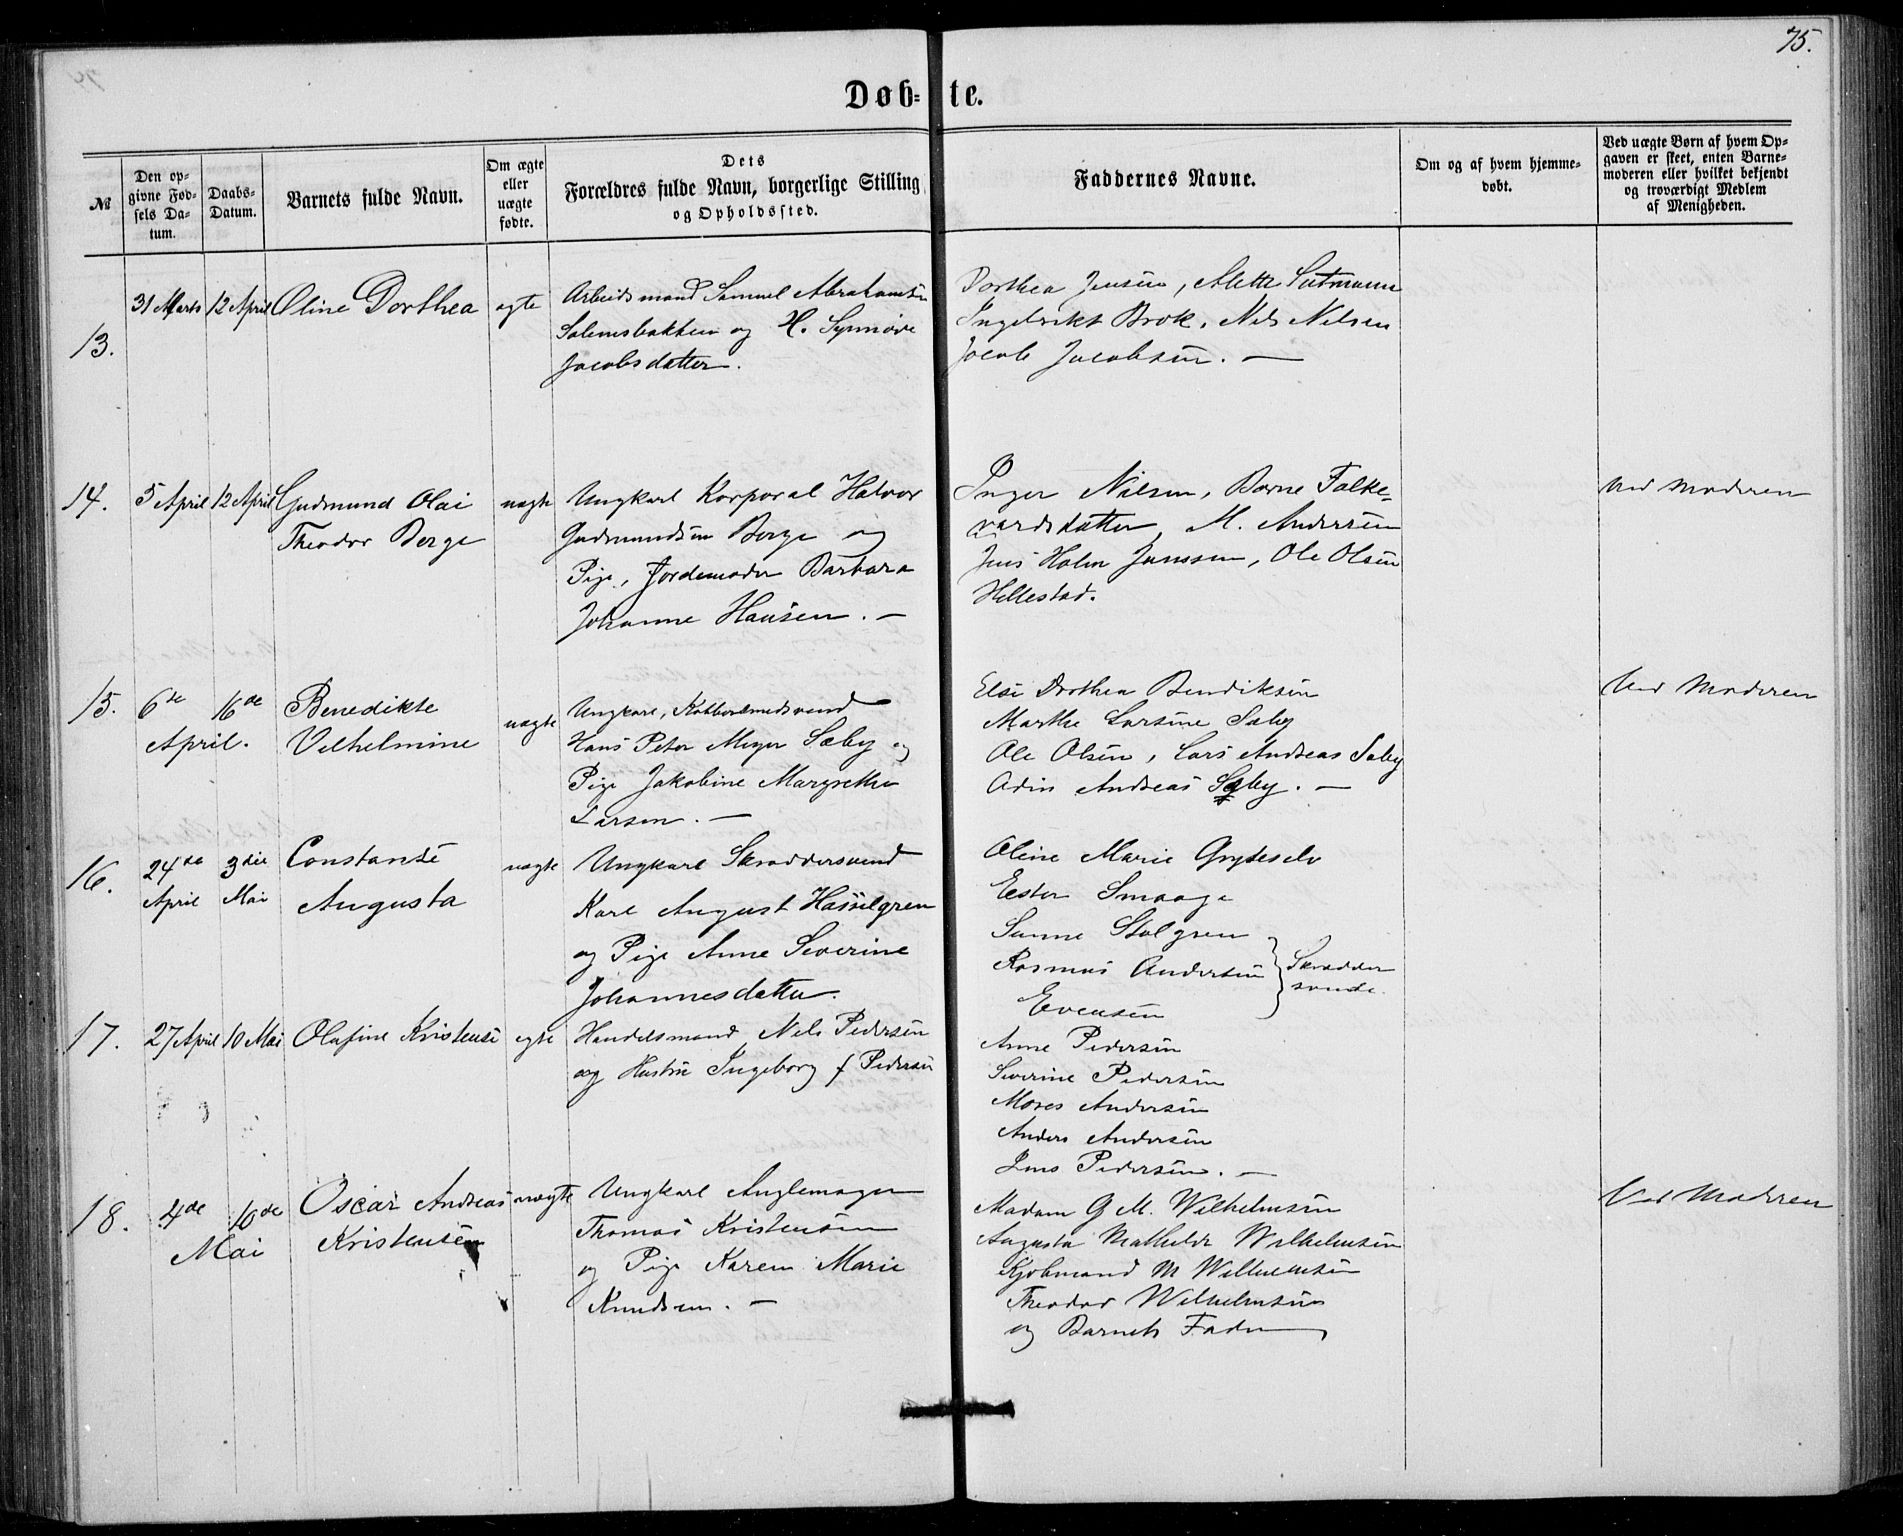 75.
Døb- te.
№
Den op-
givne Fød-
sels Da-
tum.
Daabs-
Datum.
Barnets fulde Navn.
Om ægte
eller
uægte
fødte.
Dets
Forældres fulde Navn, borgerlige Stilling
og Opholdssted.
Faddernes Navne.
Om og af hvem hjemme-
døbt.
Ved uægte Børn af hvem Op-
gaven er skeet, enten Barne-
moderen eller hvilket bekjendt
og troværdigt Medlem
af Menigheden.
13.
31 Marts
12 April
Oline Dorthea
egte
Arbeidsmand Samuel Abrahamsen
Salemsbakken og H. Synnøve
Jacobsdatter.
Dorthea Jensen, Alette
Ingebrikt Brok, Nels Nelsen
Jacob Jacobsen. —
14.
5 April
12 April
Gudmund Olai
Theodor Berge
uegte
Ungkarl Korporal Halvor
Gudmundsen Berge og
Pige, Jordemoder Barbara
Johanne Hansen. —
Inger Nilsen, Barne Falke-
vardsdatter, M. Andersen
Jens Holm Janssen, Ole Olsen
Hellestad.
Ved Moderen
15.
6te
April.
16de
Benedikte
Velhelmine
uegte
Ungkarl, Kobbersmedsvend
Hans Peter Meyer Sæby og
Pige Jakobine Margrethe
Larsen. —
Else Drothea Bendiksen
Marthe Larsine Sæby
Ole Olsen, Lars Andreas Sæby
Odin Andreas Sæby. —
Ved Moderen
16.
24de
April
3die
Mai
Constanse
Augusta
uegte
Ungkarl Skreddersvend
Karl August Hasselgren
og Pige Anne Severine
Johannesdatter.
Oline Marie Grydeselv
Ester Smaage
Sunne Stolgren
Rasmus Andersen
Evensen
Skredder
svende.
17.
27 April
10 Mai
Olafine Kristense
egte
Handelsmand Nels Pedersen
og Hustru Ingeborg f Pedersen
Anne Pedersen
Severine Pedersen
Moses Andersen
Anders Andersen
Jens Pedersen. —
18.
4de
Mai
10de
Oscar Andreas
Kristensen
uegte
Ungkarl Anglemager
Thomas Kristensen
og Pige Karen Marie
Knudsen. —
Madam G M. Wilhelmsen
Augusta Mathilde Wilhelmsen
Kjøbmand M Wilhelmsen
Theodor Wilhelmsen
og Barnets Fader
Ved Moderen